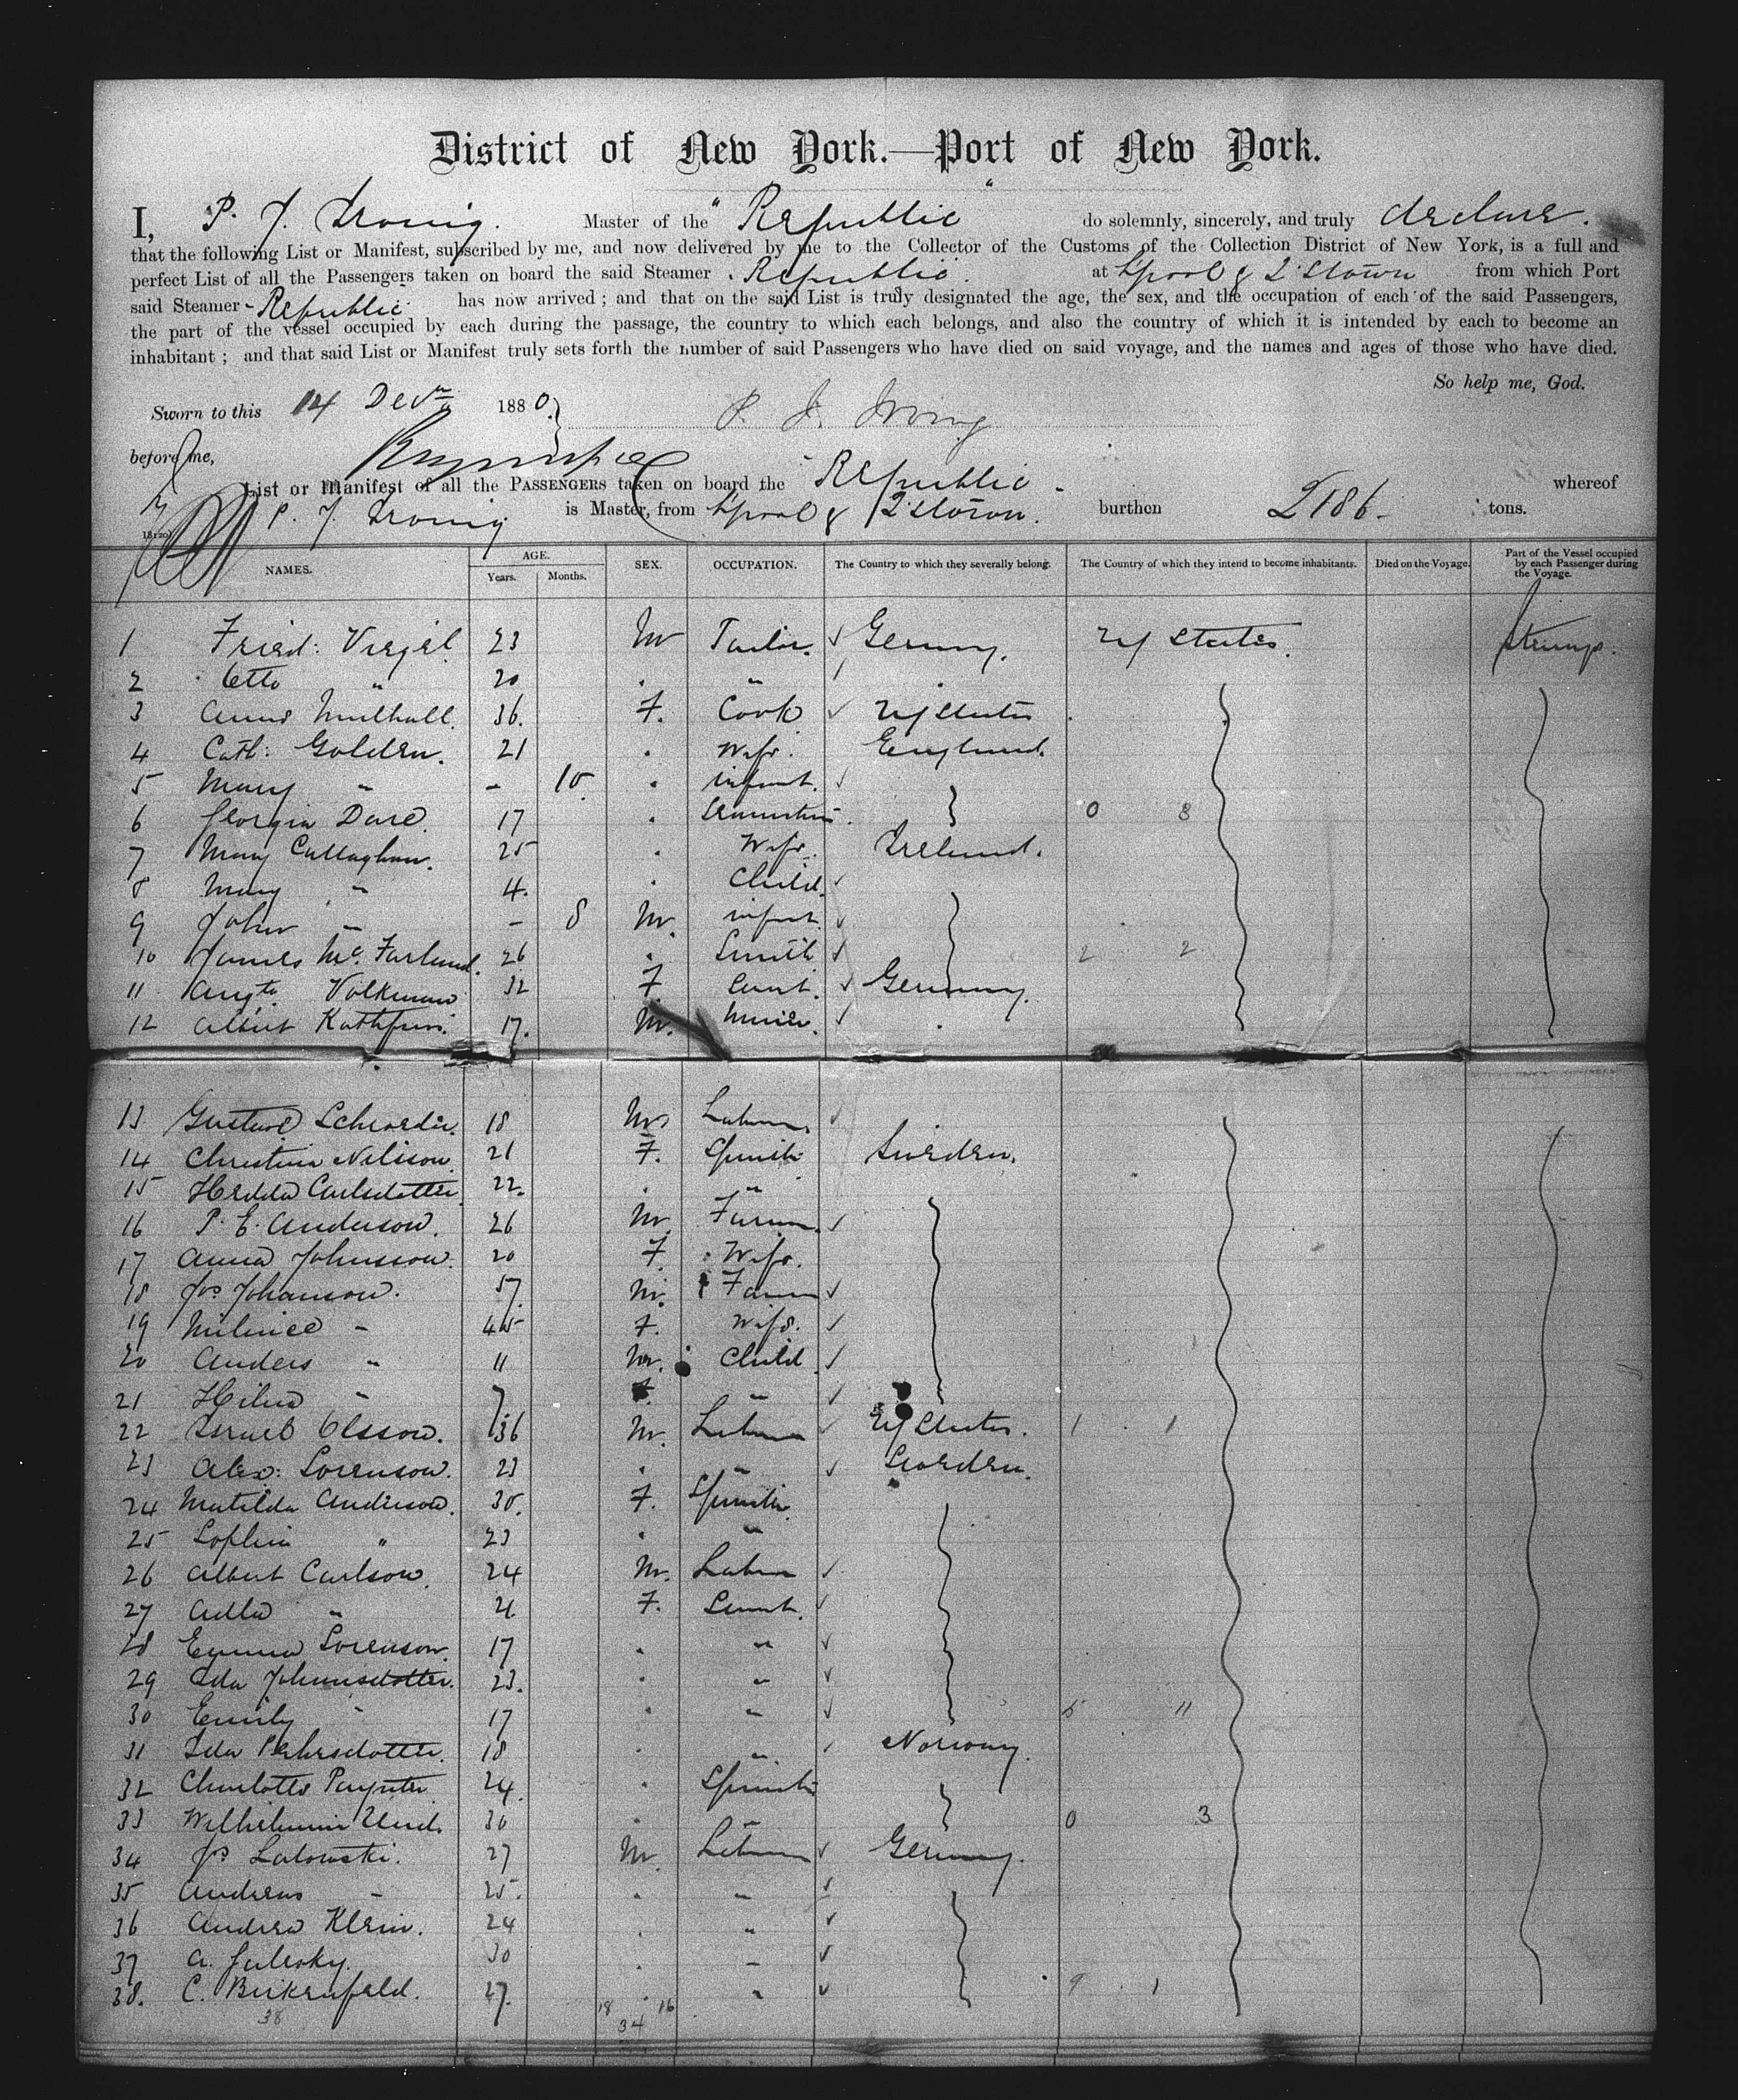 District of New York.—Port of New York.
I, P. J. Irving. Master of the "Republic" do solemnly, sincerely, and truly declare.
that the following List or Manifest, subscribed by me, and now delivered by me to the Collector of the Customs of the Collection District of New York, is a full and
perfect List of all the Passengers taken on board the said Steamer Republic. at L'pool & Q'stown from which Port
said Steamer Republic has now arrived; and that on the said List is truly designated the age, the sex, and the occupation of each of the said Passengers,
the part of the vessel occupied by each during the passage, the country to which each belongs, and also the country of which it is intended by each to become an
inhabitant; and that said List or Manifest truly sets forth the number of said Passengers who have died on said voyage, and the names and ages of those who have died.
So help me, God.
Sworn to this 14 Decr 1880. P. J. Irving
before me,
List or Manifest of all the PASSENGERS taken on board the Republic - whereof
P. J. Irving is Master, from L'pool & Q'stown. burthen 2186- tons.
NAMES. AGE. Years. Months. SEX. OCCUPATION. The Country to which they severally belong. The Country of which they intend to become inhabitants. Died on the Voyage. Part of the Vessel occupied by each Passenger during the Voyage.
1 Fried: Viegel 23 M Tailor. Germany. U States. Steerage.
2 Otto " 20 . "
3 Anna Mulhall. 36. F. Cook U States
4 Cath: Golden. 21 . Wife. England.
5 Mary " - 10. . infant.
6 Georgia Dare. 17 . 0 8
7 Mary Callaghan. 25 . Wife. Ireland.
8 Mary " 4. . Child.
9 John " - 8 M. infant
10 James McFarland. 26 . Smith 2 2
11 Augta. Volkmann 32 F. Servt. Germany.
12 Albert 17. M.
13 Gustav Schroeder. 18 M. Labour
14 Christina Nilsson. 21 F. Spinstr Sweden.
15 Hedda Carlsdotter 22. . "
16 P. E. Anderson. 26 M. Farmr.
17 Anna Johnsson. 20 F. Wife.
18 Jos Johanson. 57. M. Farmr
19 " 45 F. Wife.
20 Anders " 11 M. Child
21 Hilma " 7. F. "
22 Olsson. 36 M. Labour U States. 1 1
23 Alex: Sorenson. 23 . " Sweden.
24 Matilda Anderson. 30. F. Spinstr.
25 Sophia " 23 . "
26 Albert Carlson. 24 M. Labour
27 " 21. F. Servt.
28 Emma Sorenson. 17 . "
29 Ida Johansdotter. 23. . "
30 Emily " 17 . " 5 11
31 Ida Pehrsdotter. 18 . " Norway.
32 Charlotte Paynter. 24. . Spinstr
33 Wilhelmina 36 . " 0 3
34 Jos 27 M. Labour Germany.
35 Andreas " 25. . "
36 Andrew Klein. 24 . "
37 A. 30 . "
38. C. Birkenfeld. 27. . " 9 1
38 18 16
34